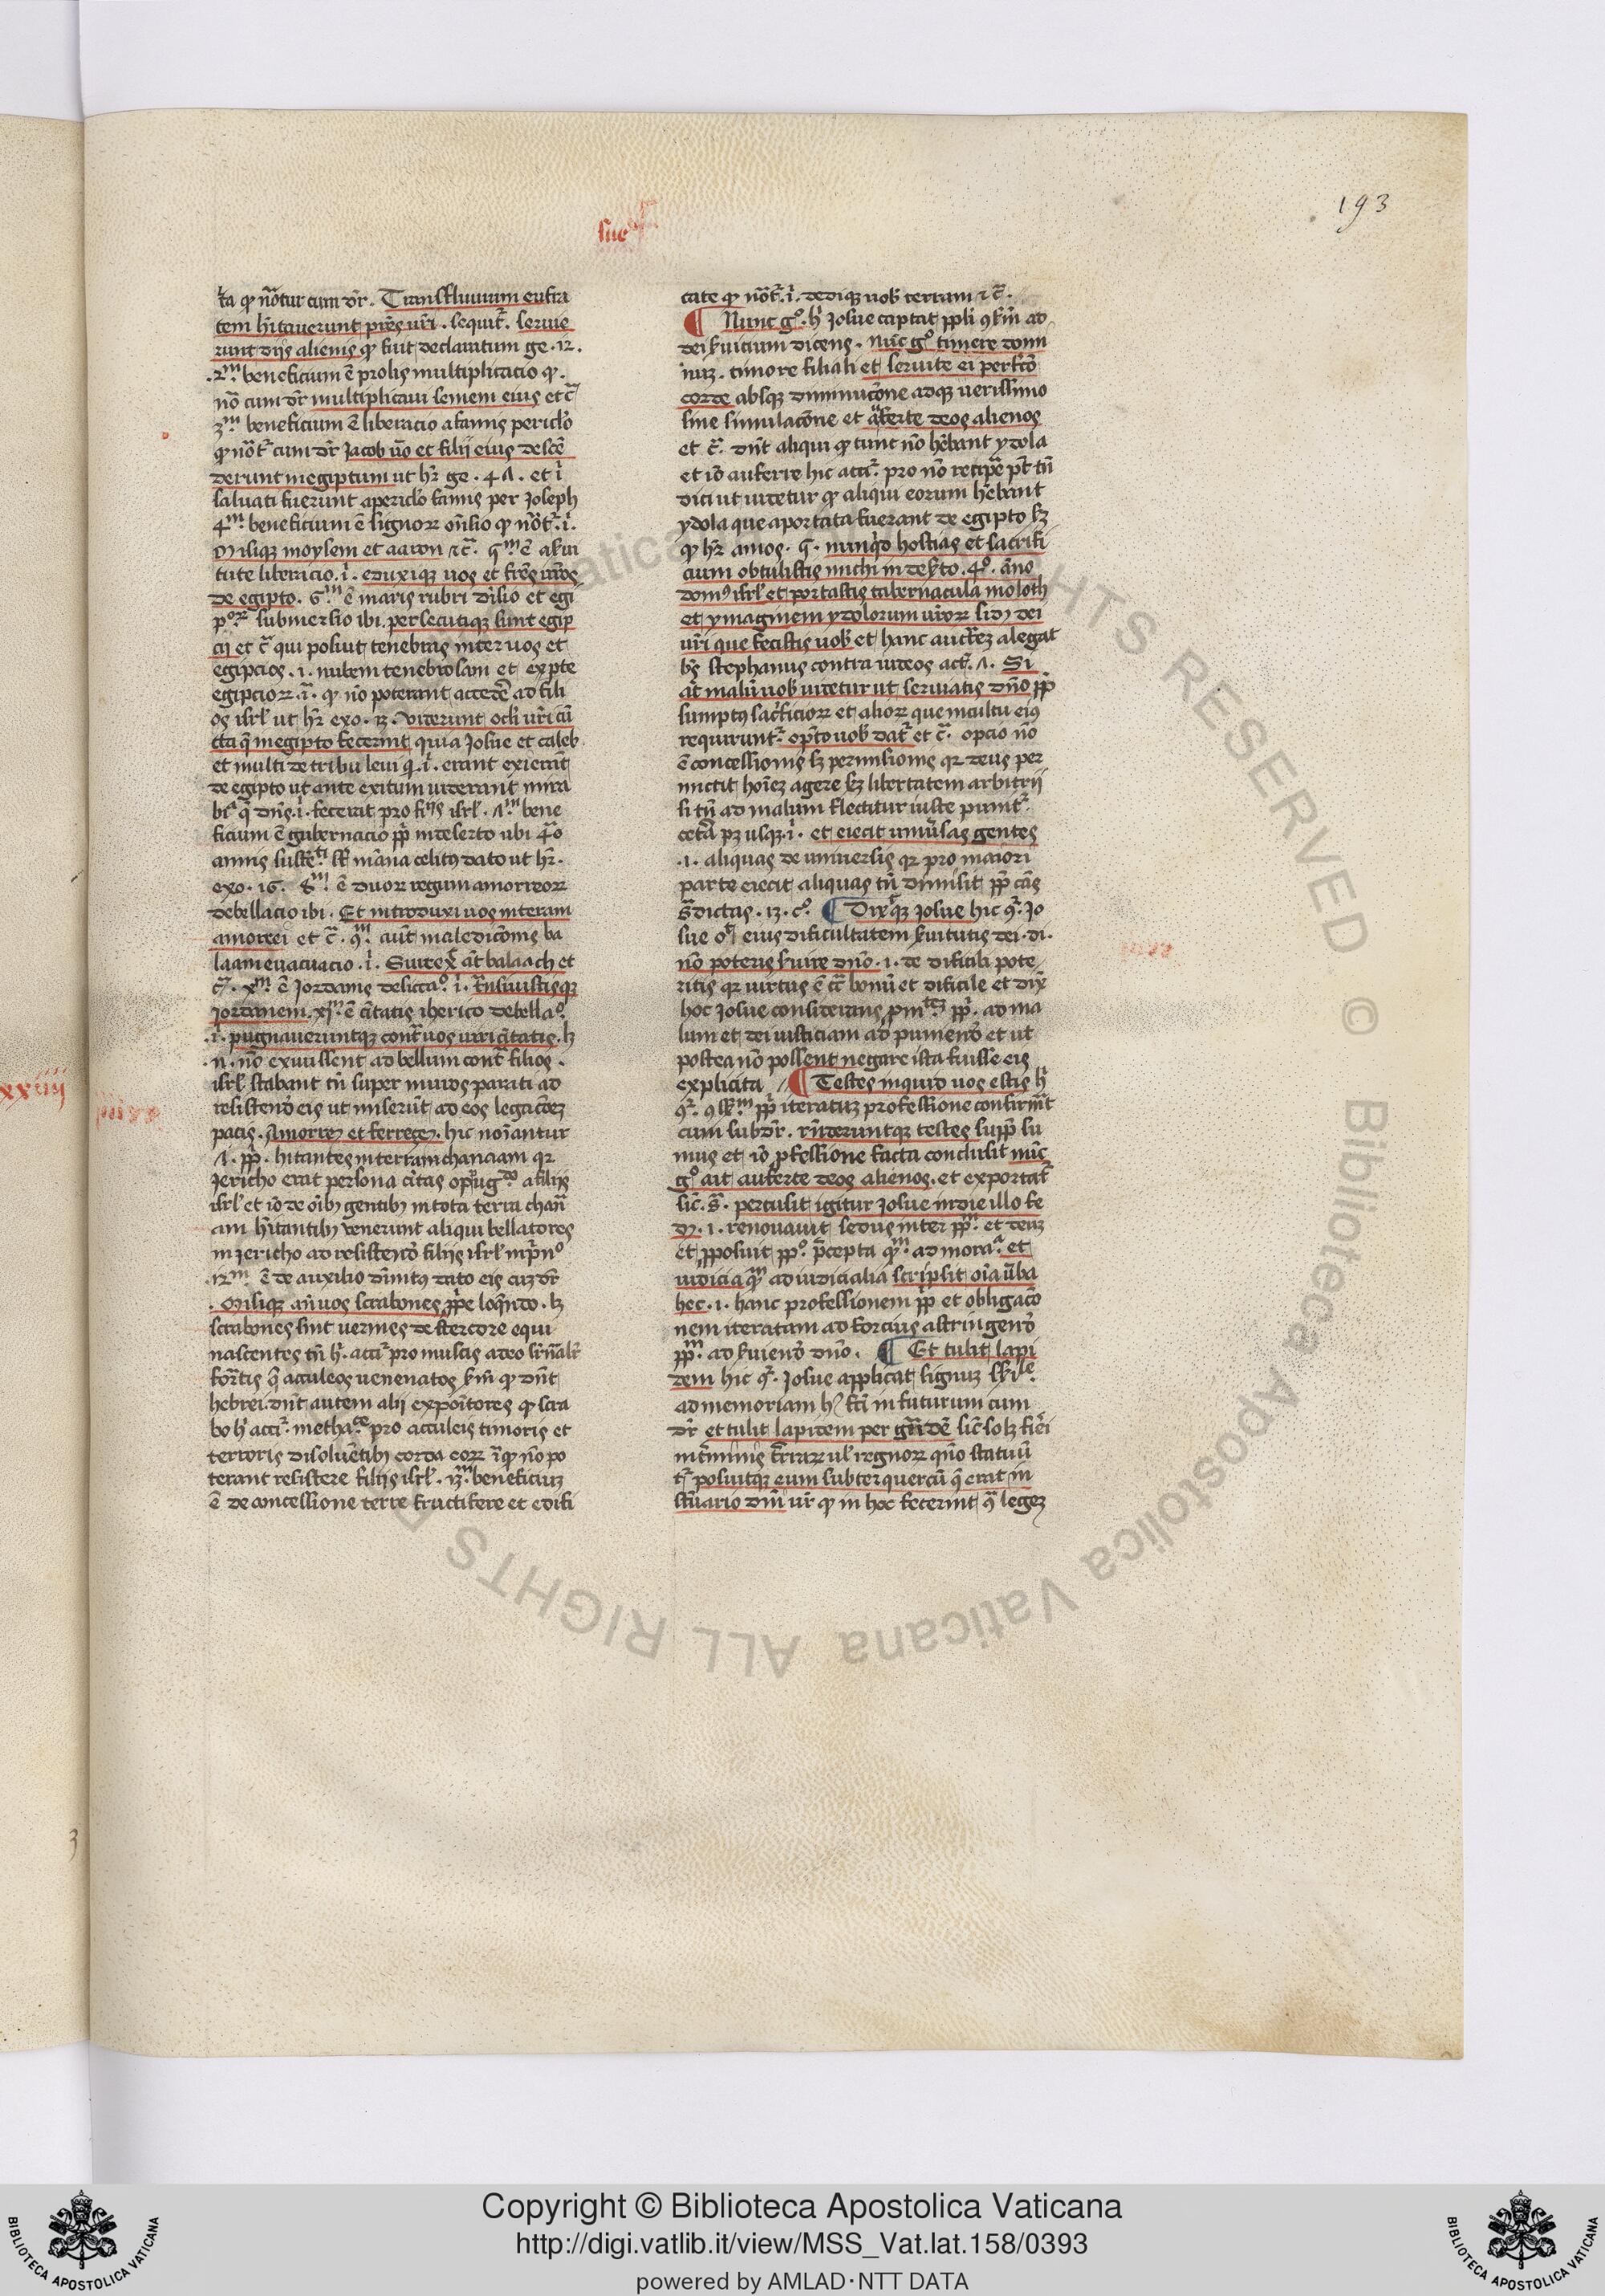 193
sue
t̾a qͥ nōtur cum dr̄. Transfluuium eufra
tem hītauerunt prēs ur̄i. sequit᷑. seruie
runt diis alienis qͥ fuit declaratum ge. 12.
.2ᵐ. beneficium ē prolis multiplicacio qͥ.
nō cum dr̄ multiplicaui semen eius et c̄
3ᵐ. beneficium ē liberacio a famis periclo
qͥ nōt᷑ cum dr̄ Jacob uō et filii eius descē
derunt in egiptum ut hr̄ ge. 47. et ī
saluati fuerunt a periclo famis per Joseph
4ᵐ. beneficium ē signorꝝ onsio qͥ nōt᷑. ī.
Misiqꝫ moysem et aaron ⁊ c̄. 5ᵐ. ē a serui
tute liberacio. ī. eduxiqꝫ uos et pr̄es ur̄os
de egipto. 6ᵐ ē maris rubri diuisio et egi
pᵒꝝ submersio ibi. persecutiqꝫ sunt egip
cii et c̄ qui posuit tenebras inter uos et
egipcios. i. nubem tenebrosam et ex pte
egipciorꝝ. ī. qͥ nō poterant accedē ad fili
os isrl ut hr̄ exo. 13. Viderunt ocli ur̄i cū
cta q̄ in egipto fecerim quia Josue et caleb
et multi de tribu leui q̄. ī. erant exierāt
de egipto ut ante exitum uiderant mira
bᵃ q̄ dn̄s. ī. fecerat pro filiis isrl. 7ᵐ bene
ficium ē gubernacio ppli in deserto ubi 4ᵒ
annis sustēti sūt māna celitꝰ dato ut hr̄.
exo. 16. 8ᵐ. ē duorꝝ regum amorreorꝝ
debellacio ibi. Et introduxi uos in teram
amorrei et c̄. 9ᵐ. aut maledicōnis ba
laam euacuacio. ī. Surrex̄ at balaach et
c̄. xᵐ. ē Jordanis desiccaᵒ. ī. Trnsiuistisqꝫ
Jordanem. xjᵐ. ē ciūitatis iherico debellaᵒ.
.ī. pugnaueruntqꝫ cont᷑ uos uiri ciūitatis. lꝫ
.n. nō exiuissent ad bellum cont᷑ filios.
isrl stabant tn̄ super muros parati ad
resistend eis ut miserūt ad eos legacōez
pacis. Amorreꝰ et ferreeꝰ. hic noīantur
7. ppli. hītantes in terram chanaam qꝛ
Jericho erat persona ciūitas opugᵈᵃ a filiis
isrl et iō de oībꝫ gentibꝫ in tota terra chanā
am hītantibꝫ venerunt aliqui bellatores
in Jericho ad resistend filiis isrl in prīnᵒ
.12ᵐ. ē de auxilio diūinitꝰ dato eis cuꝫ dr̄
. Misiqꝫ an̄ uos scrabones prꝓe loqndo. lꝫ
scrabones sint uermes de stercore equi
nascentes tn̄ hͥ. accīt᷑ pro muscis adeo
fortis q̄ acculeos uenenatos hn̄t qͥ dn̄t
hebrei. dn̄t autem alii expoītores qͥ scra
bo hͥ accīt᷑. methaᶜᵉ pro acculeis timoris et
terroris disoluētibꝫ corda eorꝝ īqͥ nō po
terant resistere filiis isrl. 13ᵐ. beneficiuꝫ
ē de concessione terre fructifere et edifi
cate qͥ nōt᷑. ī. dediqꝫ uob̄ terram ⁊ c̄.
¶ Nunc gᵒ. hͥ Josue captat ppli ꝯsēsū ad
dei seruicium dicens. Nūc gᵒ timete domi
nuꝫ. timore filiali et seruite ei perfcō
corde absqꝫ diminucōne adqꝫ uerissimo
sine simulacōne et auferte deos alienos
et c̄. dn̄t aliqui qͥ tunc nō hēbant ydola
et iō auferre hic accīt᷑. pro nō recipē pt̄ tn̄
dici ut uidetur qͥ aliqui eorum hēbant
ydola que aportata fuerant de egipto sꝫ
qͥ hr̄ amos. 5. nunqd hostias et sacrifi
cium obtulistis michi in desto. 4ᵒ. āno
domꝰ isrl et portastis tabernacula moloth
et ymaginem ydolorum ur̄orꝝ sidꝰ dei
ur̄i que fecistis uob̄ et hanc auctēz alegat
bs̄ stephanus contra iudeos act̄. 7. Si
at malū uob̄ uidetur ut seruiatis dn̄o pp̄
sumptus sacrficiorꝝ et aliorꝝ que in cultu eiꝰ
requirunt᷑. optō uob̄ dat᷑ et c̄. opcio nō
ē concessionis sꝫ permissionis qꝛ deus per
mictit hoīez agere sꝫ libertatem arbitrii
si tn̄ ad malum flectitur iuste punit᷑.
cetā pꝫ usqꝫ. ī. et eiecit uniūsas gentes
.i. aliquas de uniuersis qꝛ pro maiori
parte eiecit aliquas tn̄ dimisit pp̄ cās
sᵃdictas. 13. cᵒ. ¶ Dixitqꝫ Josue hic qͬ. Jo
sue oⁿ eius dificultatem seruitutis dei. di.
nō poteris seruire dn̄o. i. de dificili pote
ritis qꝛ uirtus ē cᵃ bonū et dificile et dix̄
hoc Josue considerans pniᵗᵉᵐ ppli. ad ma
lum et dei iusticiam ad puniend et ut
postea nō possent negare ista fuisse eis
explicita // ¶ Testes inquid uos estis hͥ
qͬ. ꝯsēsᵐ ppli iteratuꝫ professione confirmāt
cum subdr̄. rn̄deruntqꝫ testes suppli su
mus et iō pfessione facta conclusit nūc
gᵒ ait auferte deos alienos. et exportat᷑
sic̄. sᵃ. perculit igitur Josue in die illo fe
dꝰ. i. renouauit fedus inter pplᵐ. et deuꝫ
et pposuit ppᵒ. pcepta qᵐ. ad moraᵃ. et
iudicia qᵐ ad iudicialia scripsit oīa uba
hec. i. hanc professionem ppli et obligacō
nem iteratam ad forcius astringend
pplᵐ. ad seruiend dn̄o. ¶ Et tulit lapi
dem hic qͬ. Josue applicat signuꝫ
ad memoriam hꝰ fcī in futurum cum
dr̄ et tulit lapidem per grādē sic̄ solꝫ fieri
in tminis trarꝝ ul regnorꝝ qn̄o statuū
t᷑ posuitqꝫ eum subter quercū q̄ erat in
stūario dn̄i ur̄ qͥ in hoc fecerint q̄ legez
xxiiij
3
Copyright © Biblioteca Apostolica Vaticana
http://digi.vatlib.it/view/MSS_Vat.lat.158/0393
powered by AMLAD·NTT DATA
BIBLIOTECA APOSTOLICA VATICANA
BIBLIOTECA APOSTOLICA VATICANA
© Biblioteca Apostolica Vaticana ALL RIGHTS RESERVED